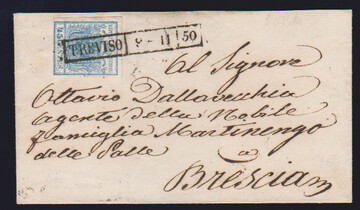 45
TREVISO 9 - 11 50
Al Signore
Ottavio Dallavecchia
agente della Nobile
famiglia Martinengo
delle Palle
a
Brescia